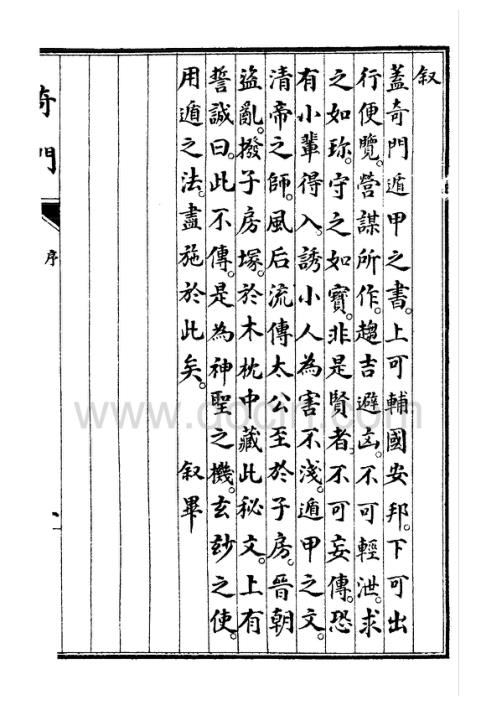 叙
蓋奇門遁甲之書。上可輔國安邦。下可出
行便覽。營謀所作。趨吉避凶。不可輕泄。求
之如珎。守之如寳。非是賢者。不可妄傳。恐
有小輩得入。誘小人為害不淺。遁甲之文。
清帝之師。風后流傳太公至於子房。晉朝
盜亂。撥子房塚。於木枕中藏此秘文。上有
誓誠曰。此不傳。是為神聖之機。玄玅之使。
用遁之法。盡施於此矣。 叙畢
奇門
序
一